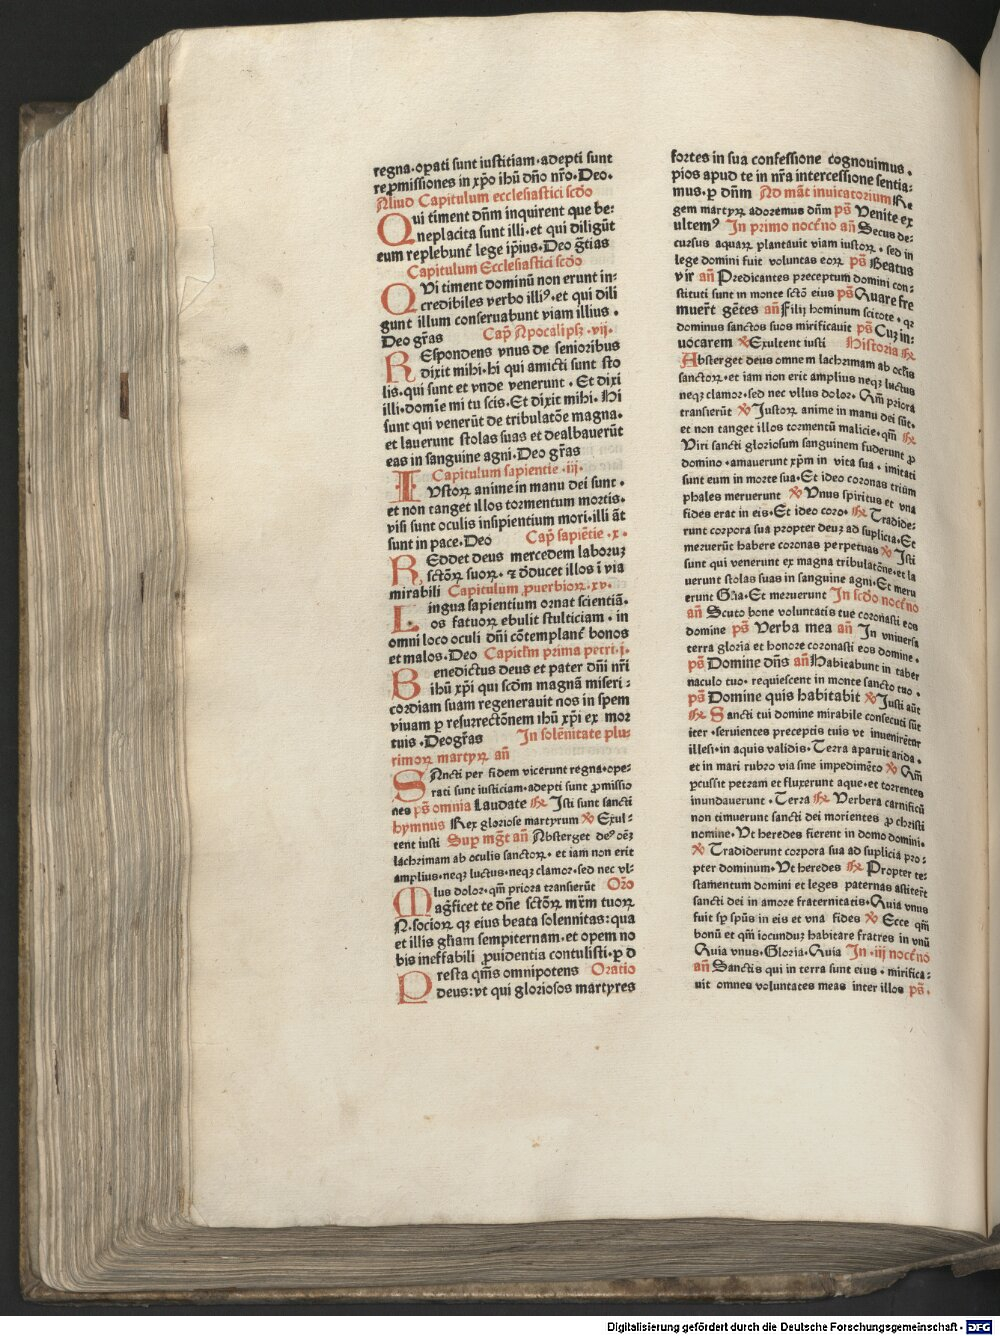 regna·oꝑati sunt iustitiam·adepti sunt
repꝛomissiones in xp̄o ihū dn̄o nr̄o·Deo·
Aliud Capitulum ecclesiastici scd̄o
Qui timent dn̄m inquirent que be:
neplacita sunt illi·et qui diligūt
eum replebunt lege ip̄ius·Deo gr̄tias
Capitulum Ecclesiastici scd̄o
QVi timent dominū non erunt in:
credibiles verbo illiꝰ·et qui dili
gunt illum conseruabunt viam illius·
Deo gr̄as Cap̄ Apocalipsꝫ·vij·
REspondens vnus de senioribus
dixit mihi·hi qui amicti sunt sto
lis·qui sunt et vnde venerunt·Et dixi
illi·domīe mi tu scis·Et dixit mihi·Hi
sunt qui venerūt de tribulatōe magna·
et lauerunt stolas suas et dealbauerūt
eas in sanguine agni·Deo gr̄as
Capitulum sapientie·iij·
IVstoꝝ anime in manu dei sunt·
et non tanget illos tormentum mortis·
visi sunt oculis insipientium mori·illi āt
sunt in pace·Deo Cap̄ sapiētie·x·
REddet deus mercedem laboruꝫ
sctōꝝ suoꝝ·⁊ d̄ducet illos ī via
mirabili Capitulum ꝓuerbioꝝ·xv·
Lingua sapientium ornat scientiā·
os fatuoꝝ ebulit stulticiam·in
omni loco oculi dn̄i cōtemplant̄ bonos
et malos·Deo Capitl̄m prima petri·j·
Benedictus deus et pater dn̄i nr̄i
ihū xp̄i qui scd̄m magnā miseri:
cordiam suam regenerauit nos in spem
viuam ꝑ resurrectōnem ihū xp̄i ex mor
tuis·Deogr̄as In solēnitate plu:
rimoꝝ martyꝝ an̄
SAncti per fidem vicerunt regna·ope:
rati sunt iusticiam·adepti sunt ꝓmissio
nes ps̄ omnia Laudate ℟ Isti sunt sancti
hymnus Rex gloriose martyrum ℣ Exul:
tent iusti Suꝑ mḡt an̄ Absterget deꝰ oēꝫ
lachrimam ab oculis sanctoꝝ·et iam non erit
amplius·neqꝫ luctus·neqꝫ clamor·sed nec vl:
lus dolor·qm̄ priora transierūt Orō
Mag̅ficet te dn̄e sctōꝝ mr̄m tuoꝝ
N·socioꝝ qꝫ eius beata solennitas:qua
et illis gl̄iam sempiternam·et opem no
bis ineffabili ꝓuidentia contulisti·ꝑ d
Presta qm̄s omnipotens Oratio
deus:vt qui gloriosos martyres
fortes in sua confessione cognouimus·
pios apud te in nr̄a intercessione sentia:
mus·ꝑ dn̄m Ad māt inuicatorium Re
gem martyꝝ adoremus dn̄m ps̄ Venite ex
ultemꝰ In primo noct̄no an̄ Secus de:
cursus aquaꝝ plantauit viam iustoꝝ·sed in
lege domini fuit voluntas eoꝝ ps̄ Beatus
vir an̄ Predicantes preceptum domini con:
stituti sunt in monte sctō eius ps̄ Quare fre
muer̄t gētes an̄ Filij hominum scitote·qꝫ
dominus sanctos suos mirificauit ps̄ Cuꝫ in:
uocarem ℣ Exultent iusti Historia ℟
Absterget deus omnem lachrimam ab oclīs
sanctoꝝ·et iam non erit amplius neqꝫ luctus
neqꝫ clamor·sed nec vllus dolor·Qm̄ priora
transierūt ℣ Iustoꝝ anime in manu dei sūt·
et non tanget illos tormentū malicie·qm̄ ℟
Viri sancti gloriosum sanguinem fuderunt ꝓ
domino·amauerunt xp̄m in vita sua·imitati
sunt eum in morte sua·Et ideo coronas trium
phales meruerunt ℣ Vnus spiritus et vna
fides erat in eis·Et ideo coro·℟ Tradide:
runt corpora sua propter deuꝫ ad suplicia·Et
meruerūt habere coronas perpetuas ℣ Isti
sunt qui venerunt ex magna tribulatōne·et la
uerunt stolas suas in sanguine agni·Et meru
erunt Gl̄ia·Et meruerunt In scd̄o noct̄no
an̄ Scuto bone voluntatis tue coronasti eos
domine ps̄ Verba mea an̄ In vniuersa
terra gloria et honore coronasti eos domine·
ps̄ Domine dn̄s an̄ Habitabunt in taber
naculo tuo·requiescent in monte sancto tuo·
ps̄ Domine quis habitabit ℣ Iusti aūt
℟ Sancti tui domine mirabile consecuti sūt
iter·seruientes preceptis tuis vt inuenirētur
illesi·in aquis validis·Terra aparuit arida·
et in mari rubro via sine impedimēto ℣ Qm̄
ꝑcussit petram et fluxerunt aque·et torrentes
inundauerunt·Terra ℟ Verbera carnificū
non timuerunt sancti dei morientes ꝓ christi
nomine·Vt heredes fierent in domo domini·
℣ Tradiderunt corpora sua ad suplicia pro:
pter dominum·Vt heredes ℟ Propter te:
stamentum domini et leges paternas astiter̄t
sancti dei in amore fraternitatis·Quia vnus
fuit sꝑ spūs in eis et vna fides ℣ Ecce qm̄
bonū et qm̄ iocunduꝫ habitare fratres in vnū
Quia vnus·Gloria·Quia In·iij noct̄no
an̄ Sanctis qui in terra sunt eius·mirifica:
uit omnes voluntates meas inter illos ps̄·
Digitalisierung gefördert durch die Deutsche Forschungsgemeinschaft - DFG